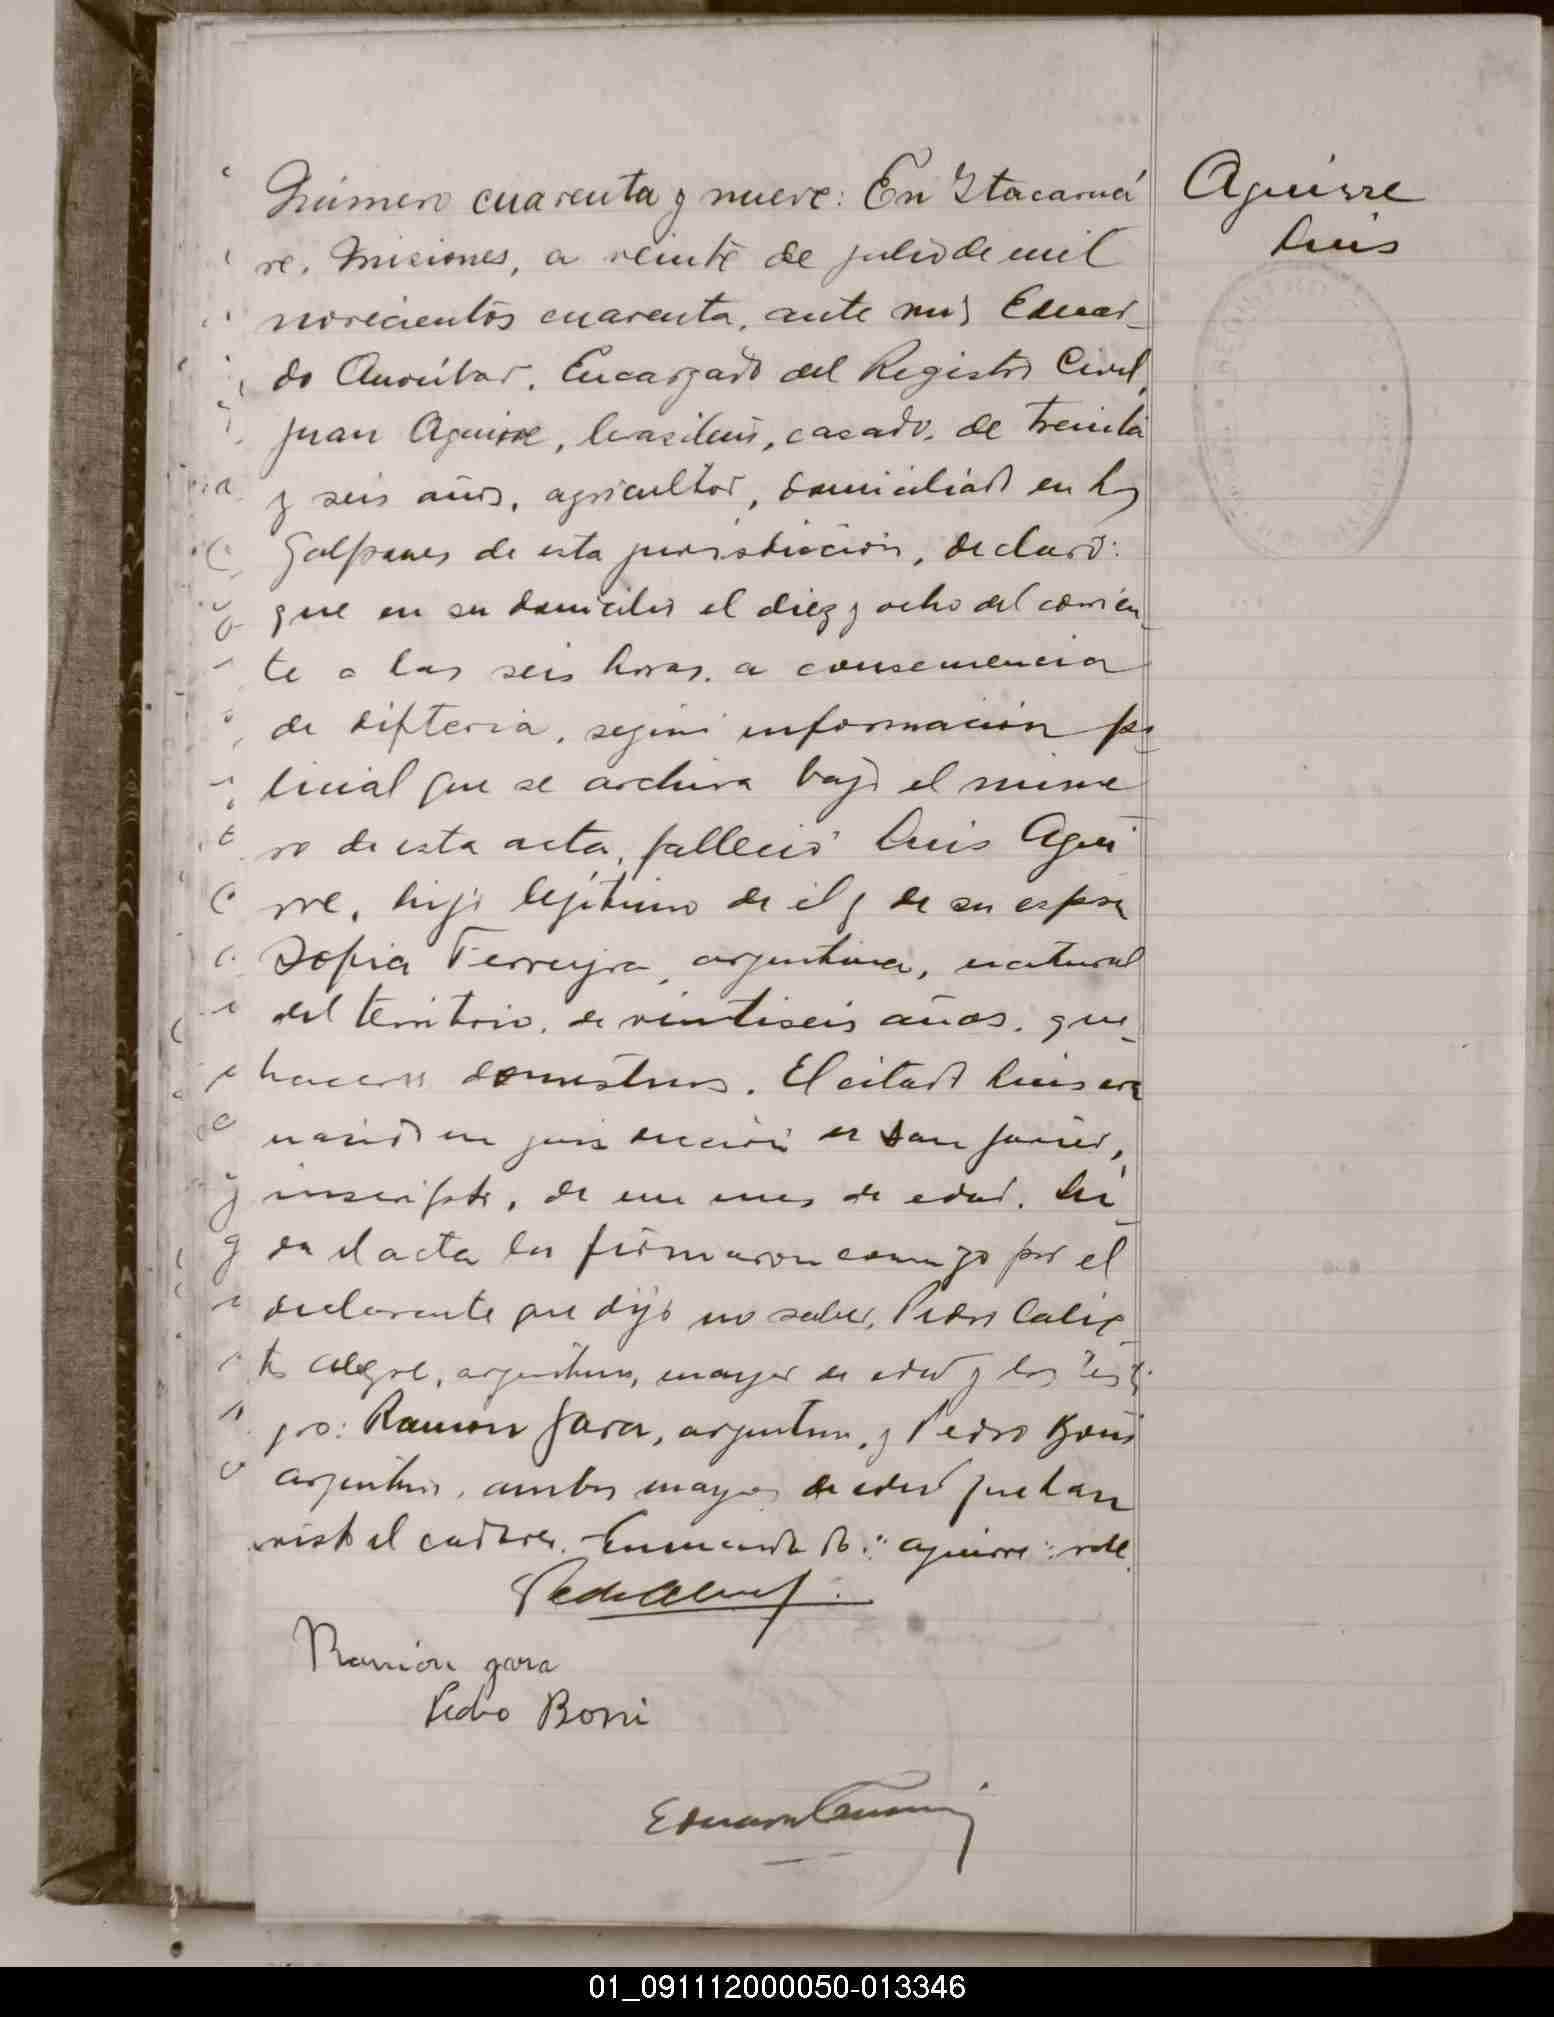 Número cuarenta y nueve: En Itacarua
Aguirre
Luis
re, Misiones, a veinte de julio de mil
novecientos cuarenta, ante mi, Eduar_
do Encargado del Registro Civil,
Juan Aguirre, brasileño, casado, de treinta
y seis años, agricultor, domiciliado en Los
Galpones de esta jurisdicción, declaró:
que en su domicilio el diez y ocho del corrien_
te a las seis horas, a consecuencia
de difteria, según información po_
licial que se archiva bajo el núme
ro de esta acta, falleció Luis Agui
rre, hijo legítimo de él y de su esposa
Sofia Ferreyra, argentina, natural
del territorio, de veintiseis años, que_
haceres domésticos. El citado Luis era
nacido en jurisdicción de San Javier,
y inscripto, de un mes de edad. Leí_
da el acta la firmaron conmigo por el
declarante que dijo no saber, Pedro Calix_
to Alegre, argentino, mayor de edad y los testi
gos: Ramón Jara, argentino, y Pedro Boni
argentino, ambos mayores de edad que han
visto el cadáver. Enmendado: "Aguirre": vale.
Ramón Jara
Pedro Boni
01_091112000050-013346